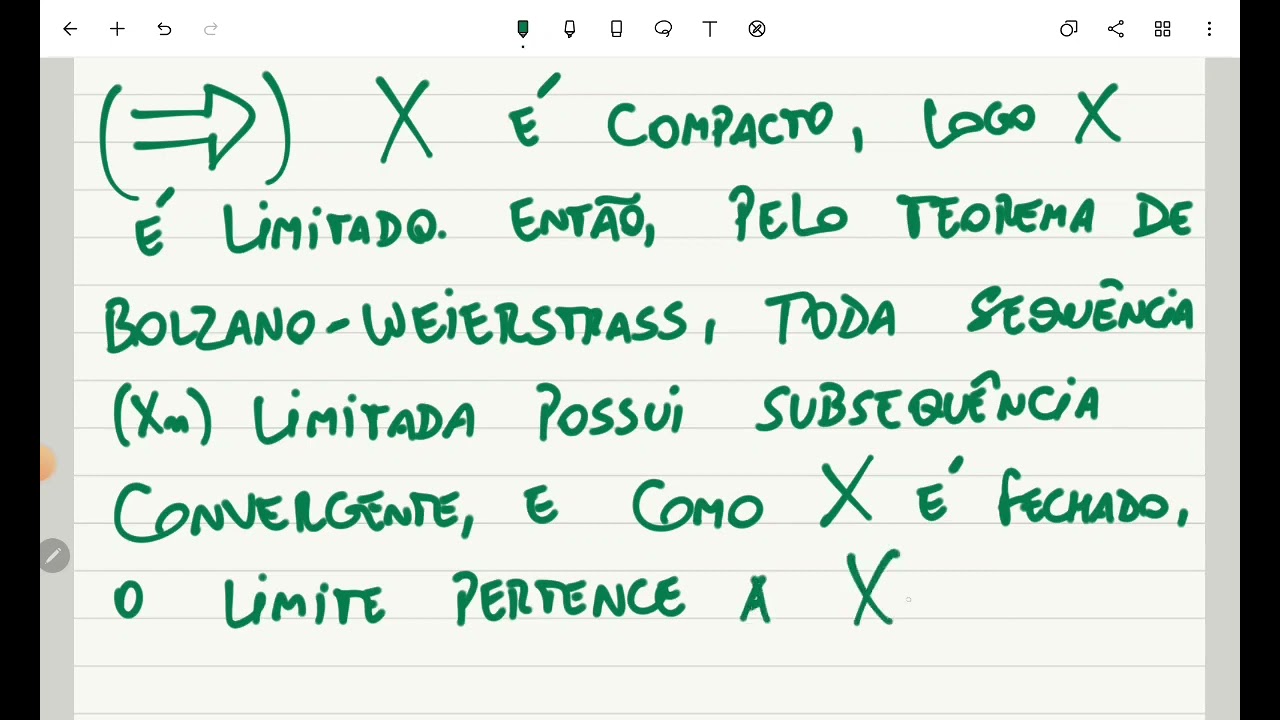 (⇒) X É COMPACTO, LOGO X
É LIMITADO. ENTÃO, PELO TEOREMA DE
BOLZANO-WEIERSTRASS, TODA SEQUÊNCIA
(Xn) LIMITADA POSSUI SUBSEQUÊNCIA
CONVERGENTE, E COMO X É FECHADO,
O LIMITE PERTENCE A X